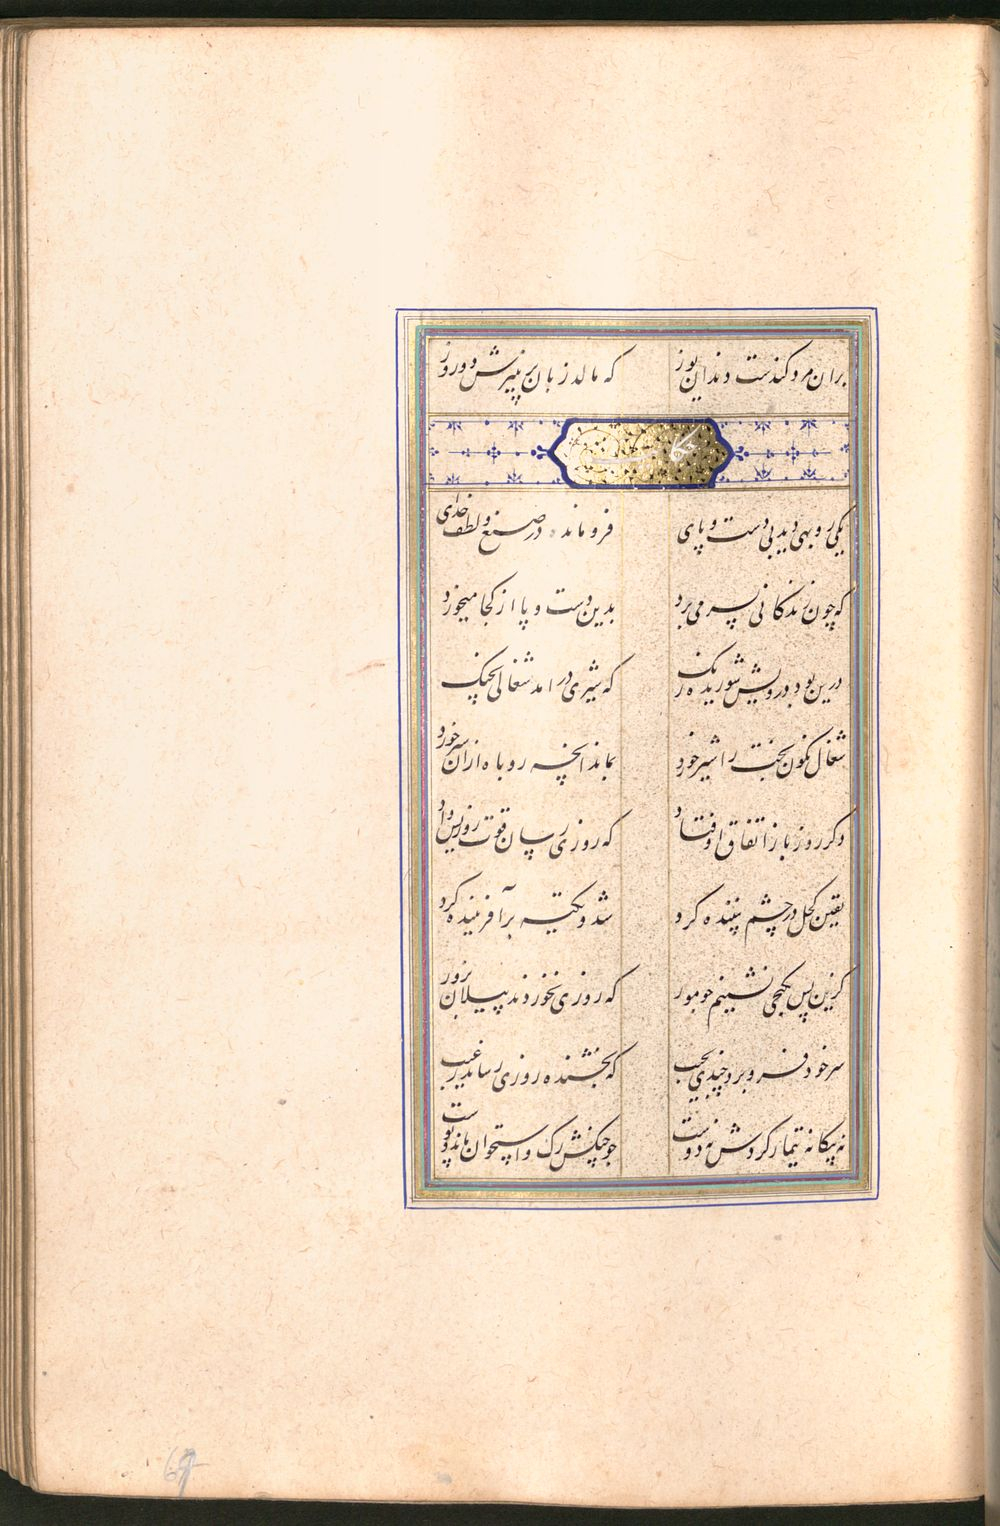 بران مرد کندست دندان یوز که مالد زبان بر پنیرش دو روز
حکایت
یکی روبهی دید بی دست و پای فرومانده در صنع و لطف خدای
که چون زندکانی بسر می برد بدین دست و پا از کجا میخورد
درین بود درویش شوریده رنک که شیری درامد شغالی بچنک
شغال نکون بخت را شیر خورد بماند انچه روباه ازان سیر خورد
دکر روز باز اتفاق اوفتاد که روزی رسان قوت روزیش داد
یقین کحل در چشم بیننده کرد شد و تکیه بر آفریننده کرد
کزین پس بکنجی نشینم چو مور که روزی نخوردند پیلان بزور
سر خود فرو برد چندی بجیب که بخشنده روزی رساند ز غیب
نه بیکانه تیمار کردش نه دوست چو چنکش رک و استخوان ماند و پوست